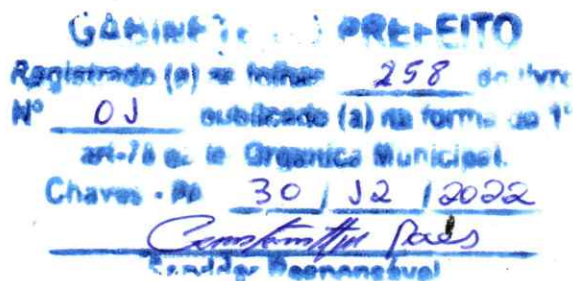 GABINETE DO PREFEITO
Registrado (a) as folhas 258 do livro
Nº 01 publicado (a) na forma do 1º
art-78 da le Organica Municipal.
Chaves - PA 30 / 12 / 2022
Paes
Servidor Responsável